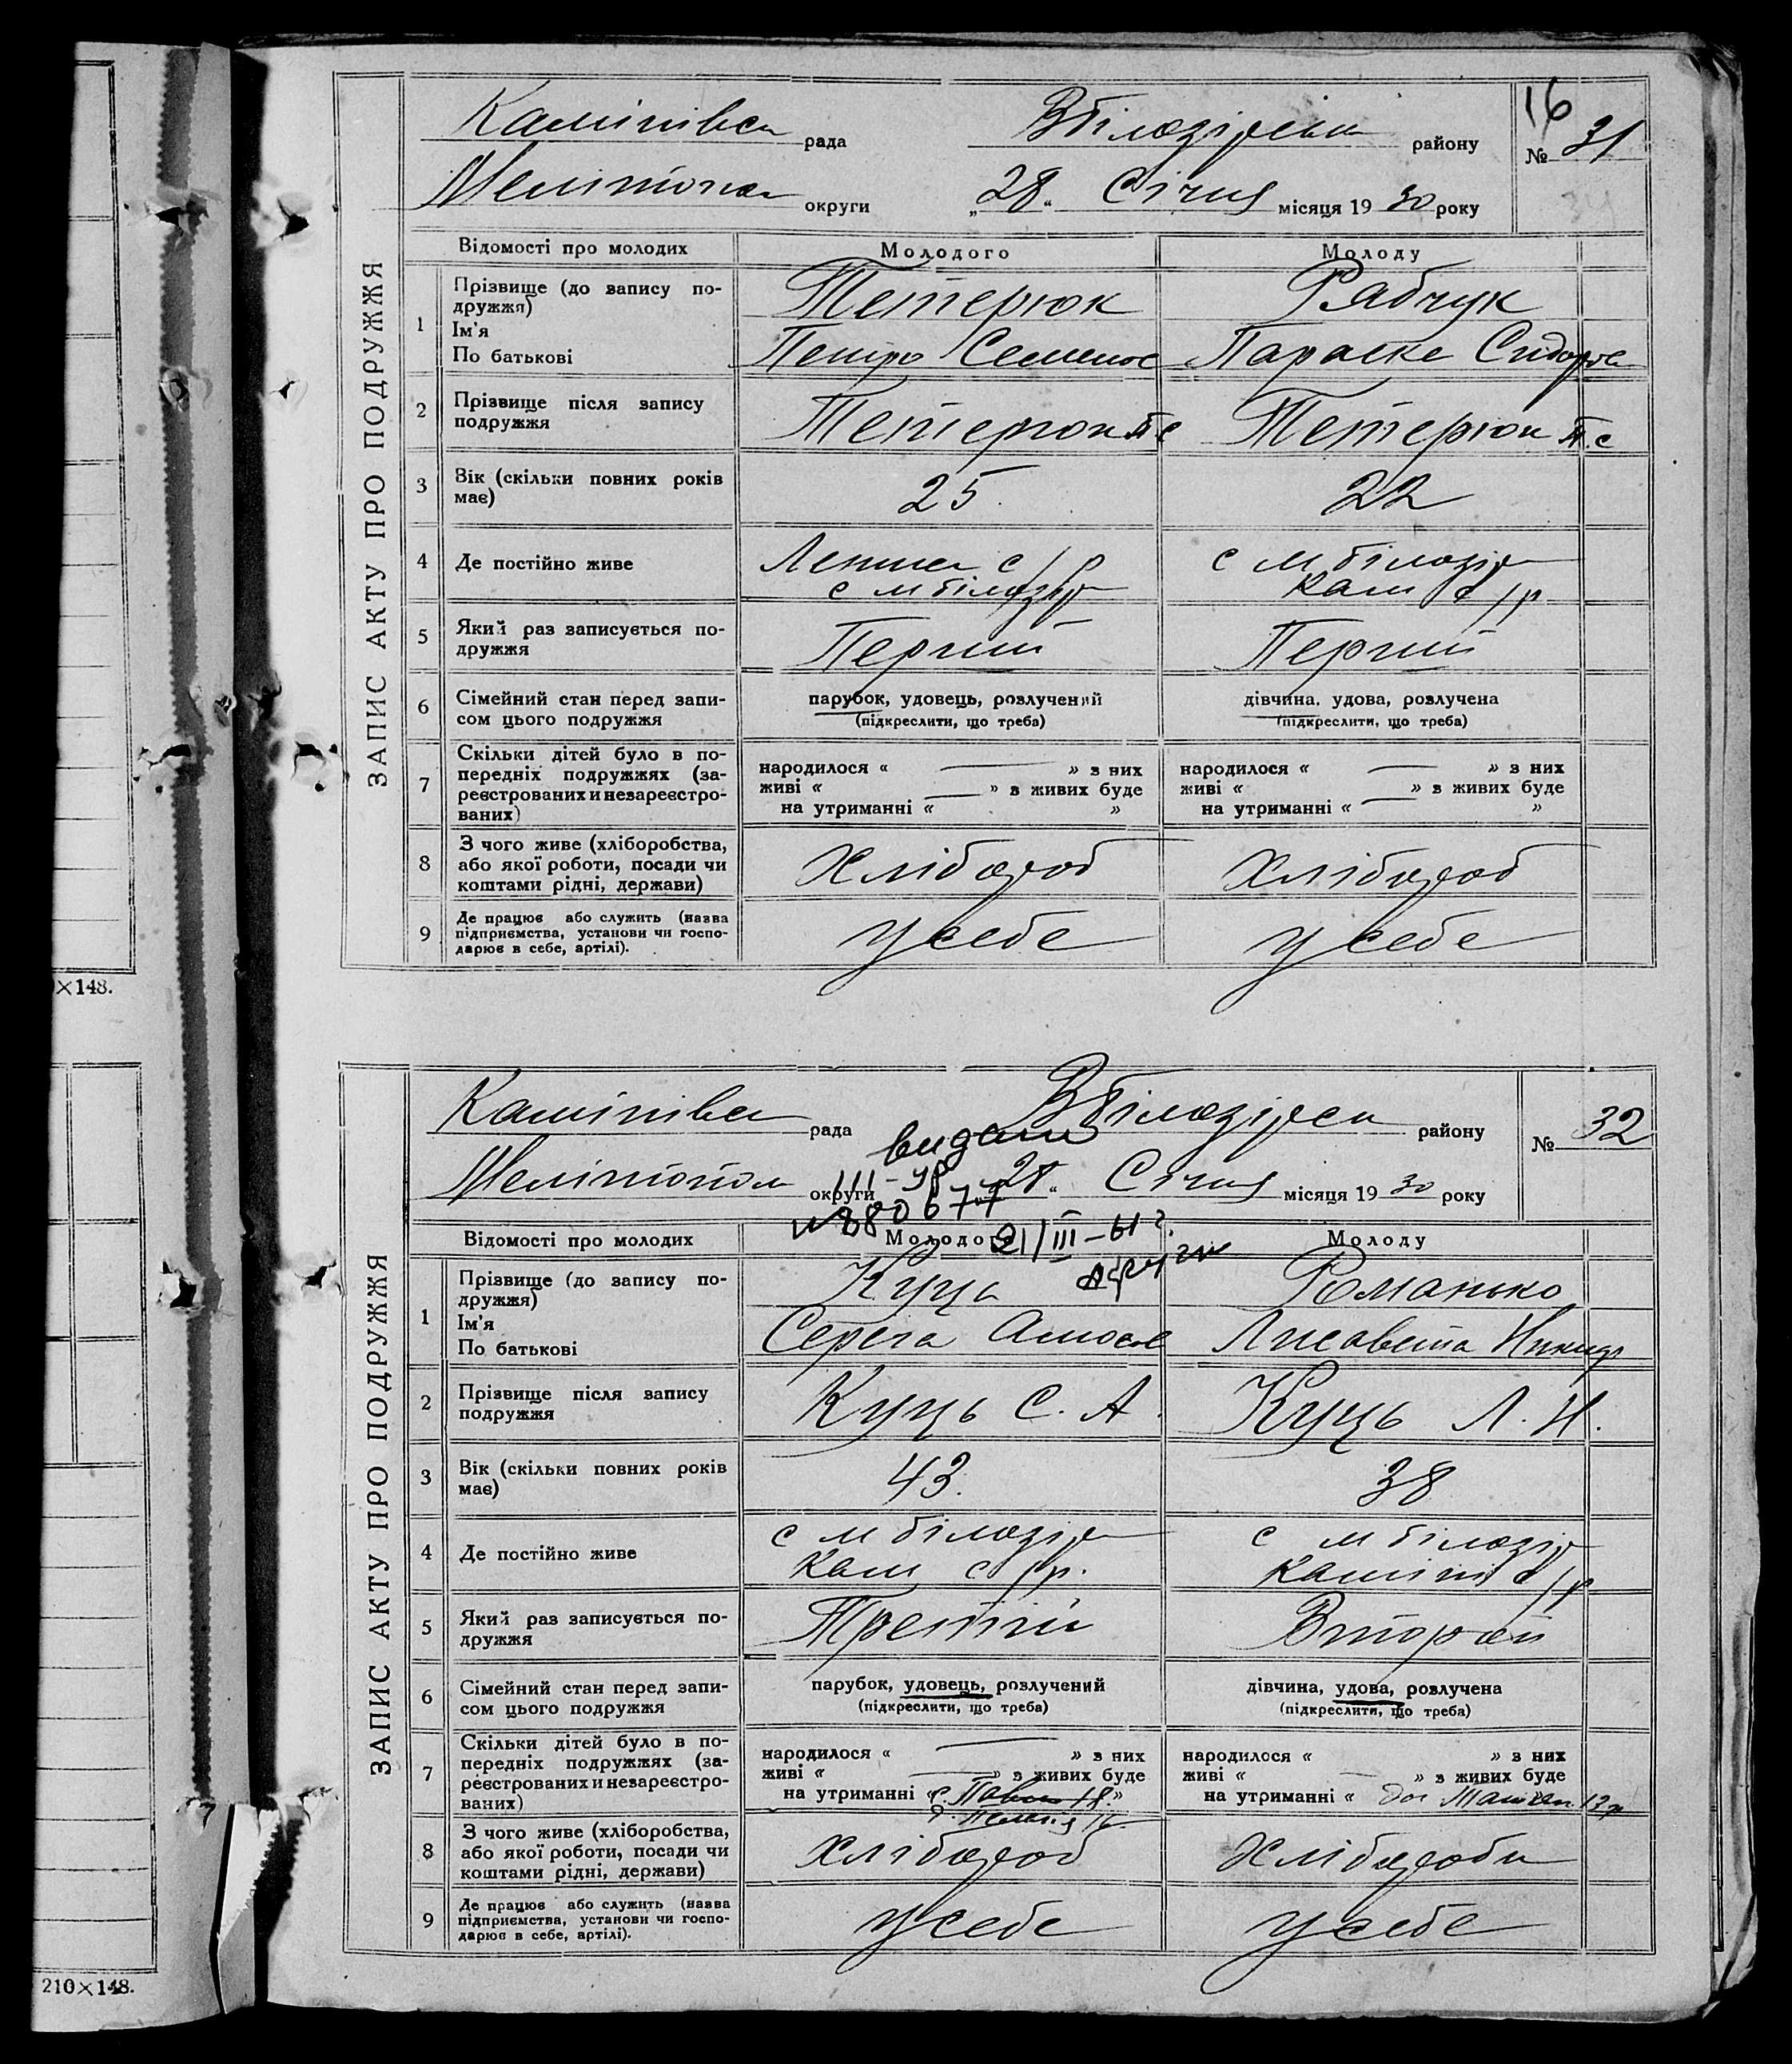 16
Камінівсь рада Вбілозірськ району № 31
Мелітопол округи „28“ Січня місяця 1930 року
ЗАПИС АКТУ ПРО ПОДРУЖЖЯ
Відомості про молодих Молодого Молоду
1 Прізвище (до запису по-
дружжя) Тетерюк Рябчук
Ім'я
По батькові Петро Семенов Параске Сидоров
2 Прізвище після запису
подружжя Тетерюк П С Тетерюк П.С
3 Вік (скільки повних років
має) 25 22
4 Де постійно живе Ленин с/р с м білозір
с м білозір Кам с/р
5 Який раз записується по-
дружжя Перший Перший
6 Сімейний стан перед запи-
сом цього подружжя парубок, удовець, розлучений дівчина, удова, розлучена
(підкреслити, що треба) (підкреслити, що треба)
7 Скільки дітей було в по-
передніх подружжях (за-
реєстрованих и незареєстро-
ваних)
народилося « — » з них народилося « — » з них
живі « — » з живих буде живі « — » з живих буде
на утриманні « » на утриманні « — »
8 З чого живе (хліборобства,
або якої роботи, посади чи
коштами рідні, держави) Хлібороб Хлібороб
9 Де працює або служить (назва
підприємства, установи чи госпо-
дарює в себе, артілі). у себе у себе
×148.
Камінівсь рада Вбілозірськ району № 32
видано
Мелітопол округи „28“ Січня місяця 1930 року
III-УР
№880677
21/III-61 г.
ЗАПИС АКТУ ПРО ПОДРУЖЖЯ
Відомості про молодих Молодого Молоду
1 Прізвище (до запису по-
дружжя) Куць Романько
Ім'я
По батькові Серега Амосов Лисавета Никиф
2 Прізвище після запису
подружжя Куць С. А. Куць Л. Н.
3 Вік (скільки повних років
має) 43. 38
4 Де постійно живе с м білозір с м білозір
Кам с/р. Камінів с/р
5 Який раз записується по-
дружжя Третій Второй
6 Сімейний стан перед запи-
сом цього подружжя парубок, удовець, розлучений дівчина, удова, розлучена
(підкреслити, що треба) (підкреслити, що треба)
7 Скільки дітей було в по-
передніх подружжях (за-
реєстрованих и незареєстро-
ваних)
народилося « — » з них народилося « » з них
живі « — » з живих буде живі « — » з живих буде
на утриманні « с. Павло 18 » на утриманні « 13 р
8 З чого живе (хліборобства,
або якої роботи, посади чи
коштами рідні, держави) Хлібороб Хлібороби
9 Де працює або служить (назва
підприємства, установи чи госпо-
дарює в себе, артілі). у себе у себе
210×148.